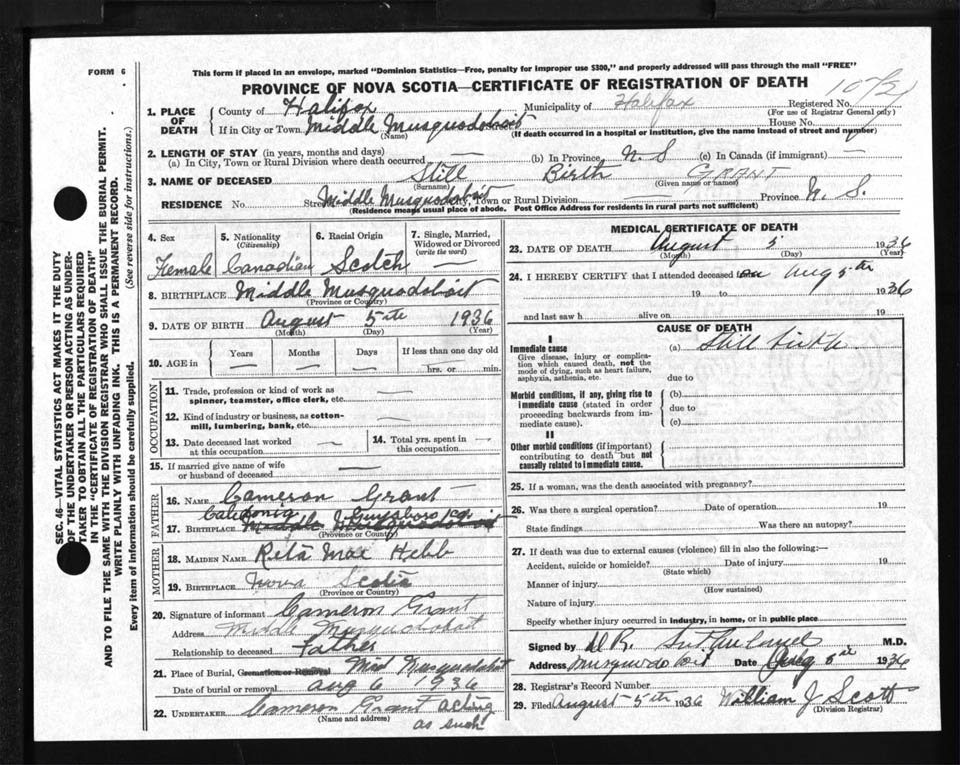 FORM 6
This form if placed in an envelope, marked "Dominion Statistics—Free, penalty for improper use $300," and properly addressed will pass through the mail "FREE"
PROVINCE OF NOVA SCOTIA—CERTIFICATE OF REGISTRATION OF DEATH
1. PLACE OF DEATH County of Halifax Municipality of Halifax Registered No.
(For use of Registrar General only)
If in City or Town Middle Musquodoboit House No.
(Name) (If death occurred in a hospital or institution, give the name instead of street and number)
2. LENGTH OF STAY (in years, months and days)
(a) In City, Town or Rural Division where death occurred — (b) In Province N. S (c) In Canada (if immigrant) —
3. NAME OF DECEASED Still Birth GRANT
(Surname) (Given name or names)
RESIDENCE No. Street Middle Musquodoboit City, Town or Rural Division Province N. S.
(Residence means usual place of abode. Post Office Address for residents in rural parts not sufficient)
4. Sex 5. Nationality (Citizenship) 6. Racial Origin 7. Single, Married, Widowed or Divorced (write the word)
Female Canadian Scotch —
8. BIRTHPLACE Middle Musquodoboit
(Province or Country)
9. DATE OF BIRTH August 5th 1936
(Month) (Day) (Year)
10. AGE in Years Months Days If less than one day old
hrs. or min.
OCCUPATION
11. Trade, profession or kind of work as spinner, teamster, office clerk, etc. —
12. Kind of industry or business, as cotton-mill, lumbering, bank, etc. —
13. Date deceased last worked at this occupation — 14. Total yrs. spent in this occupation —
15. If married give name of wife or husband of deceased —
FATHER
16. NAME Cameron Grant
Caledonia Guysboro Co
17. BIRTHPLACE Middle Musquodoboit
(Province or Country)
MOTHER
18. MAIDEN NAME Reta Mae Hebb
19. BIRTHPLACE Nova Scotia
(Province or Country)
20. Signature of informant Cameron Grant
Address Middle Musquodoboit
Relationship to deceased Father
21. Place of Burial, Cremation or Removal Mid Musquodoboit
Date of burial or removal Aug 6 1936
22. UNDERTAKER Cameron Grant acting
(Name and address) as such
MEDICAL CERTIFICATE OF DEATH
23. DATE OF DEATH August 5 1936
(Month) (Day) (Year)
24. I HEREBY CERTIFY that I attended deceased on Aug 5th
19 to 1936
and last saw h alive on 19
CAUSE OF DEATH
I
Immediate cause (a) Still birth
Give disease, injury or complication which caused death, not the mode of dying, such as heart failure, asphyxia, asthenia, etc.
due to
Morbid conditions, if any, giving rise to immediate cause (stated in order proceeding backwards from immediate cause).
(b)
due to
(c)
II
Other morbid conditions (if important) contributing to death but not causally related to immediate cause.
25. If a woman, was the death associated with pregnancy?
26. Was there a surgical operation? Date of operation 19
State findings Was there an autopsy?
27. If death was due to external causes (violence) fill in also the following:—
Accident, suicide or homicide? Date of injury 19
(State which)
Manner of injury
(How sustained)
Nature of injury
Specify whether injury occurred in industry, in home, or in public place
Signed by D R. Sutherland M.D.
Address Musquodoboit Date Aug 5th 1936
28. Registrar's Record Number
29. Filed August 5th 1936 William J Scott
(Division Registrar)
SEC 46—VITAL STATISTICS ACT MAKES IT THE DUTY
OF THE UNDERTAKER OR PERSON ACTING AS UNDER-
TAKER TO OBTAIN ALL THE PARTICULARS REQUIRED
IN THE "CERTIFICATE OF REGISTRATION OF DEATH"
AND TO FILE THE SAME WITH THE DIVISION REGISTRAR WHO SHALL ISSUE THE BURIAL PERMIT.
WRITE PLAINLY WITH UNFADING INK. THIS IS A PERMANENT RECORD.
Every item of information should be carefully supplied. (See reverse side for instructions.)